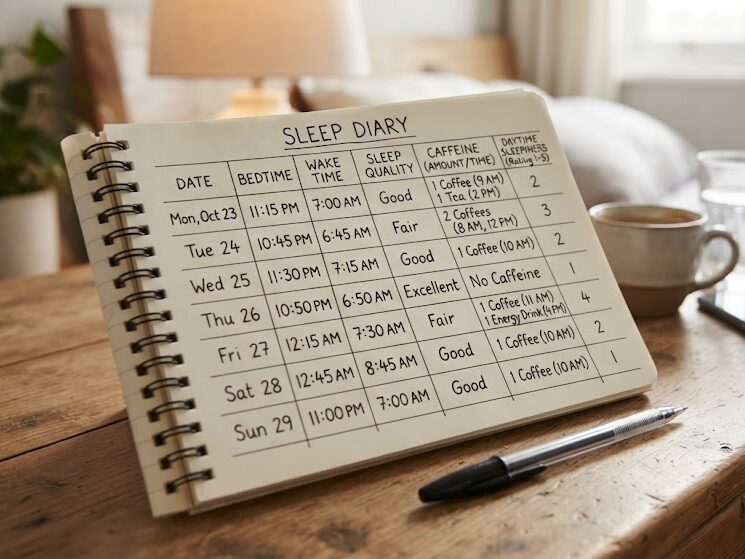 SLEEP DIARY
DATE BEDTIME WAKE TIME SLEEP QUALITY CAFFEINE (AMOUNT/TIME) DAYTIME (Rating 1-5)
Mon, Oct 23 11:15 PM 7:00 AM Good 1 Coffee (9 AM) 1 Tea (2 PM) 2
Tue 24 10:45 PM 6:45 AM Fair 2 Coffees (8 AM, 12 PM) 3
Wed 25 11:30 PM 7:15 AM Good 1 Coffee (10 AM) 2
Thu 26 10:50 PM 6:50 AM Excellent No Caffeine 1
Fri 27 12:15 AM 7:30 AM Fair 1 Coffee (11 AM) 1 Energy Drink (4 PM) 4
Sat 28 12:45 AM 8:45 AM Good 1 Coffee (10 AM) 2
Sun 29 11:00 PM 7:00 AM Good 1 Coffee (10 AM) 1